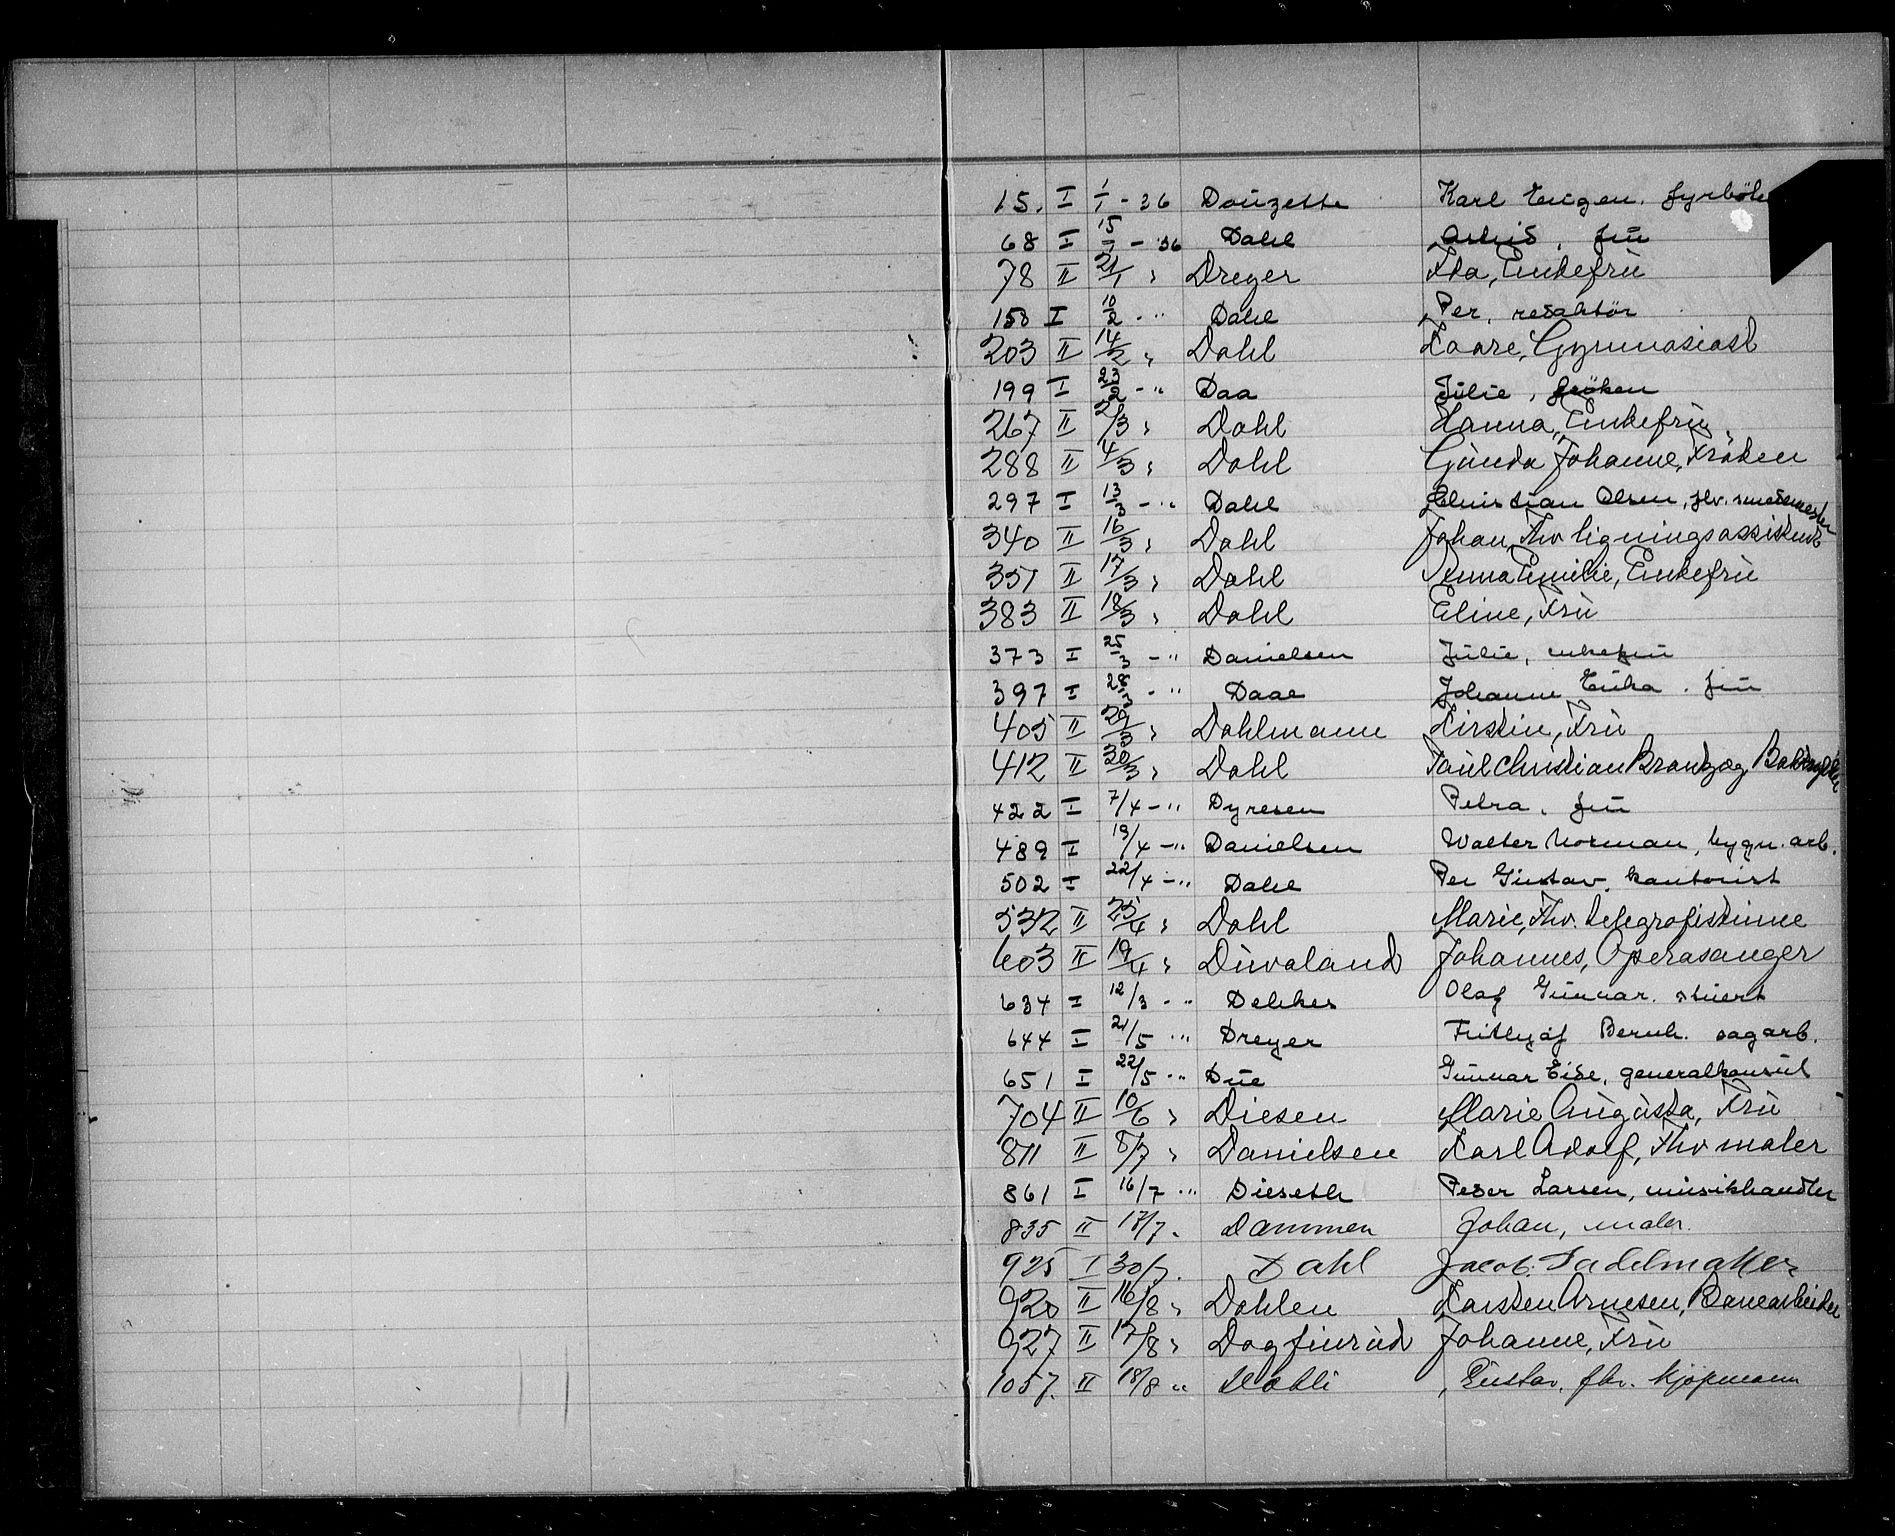 15. I 1/1 - 36 Douzette Karl Eugen. fyrböter
68 I 15/1 - 36 Dahl Astrid, frü
78 II 21/1 " Dreyer Ida, Enkefrü
158 I 10/2 - " Dahl Per, redaktör
203 II 14/2 " Dahl Kaare, Gymnasiast
199 I 23/2 - " Daa Jülie, fröken
267 II 2/3 " Dahl Hanna, Enkefrü
288 II 4/3 " Dahl Günda Johanne, Fröken
297 I 13/3 - " Dahl Christian Olsen, fhv. smedmester
340 II 16/3 " Dahl Johan, Fhv ligningsassistent
351 II 17/3 " Dahl Anna Emilie, Enkefrü
383 II 18/3 " Dahl Eline, Frü
373 I 25/3 - " Danielsen Jülie, enkefrü
397 I 28/3 - " Daae Johanne Erika. frü
405 II 29/3 " Dahlmann Kirstin, Frü
412 II 30/3 " Dahl Paül Christian Brantzæg,
422 I 7/4 - " Dyresen Petra. frü
489 I 19/4 - " Danielsen Walter Norman, bygn. arb.
502 I 22/4 - " Dahl Per Güstav. kontorist
532 II 25/4 " Dahl Marie, Fhv. telegrafistinne
603 II 19/4 " Düvaland Johannes, Operasanger
634 I 12/3 - " Dekkes Olaf Günnar. stüert
644 I 21/5 " Dreyer Fridtjof Bernh. sagarb.
651 I 22/5 " Düe Günnar Eide, generalkonsül
704 II 10/6 " Diesen Marie Aügüsta, Frü
811 II 8/7 " Danielsen Karl Adolf, Fhv maler
861 I 16/7 " Dieseth Peder Larsen, müsikhandler
835 II 17/7 " Dammen Johan, maler.
925 I 30/7. Dahl Jacob. Sadelmaker
920 II 16/8 " Dahlen Karsten Arnesen, Banearbeider
927 II 17/8 " Dagfinrüd Johanne, Frü
1057. II 18/8 " Dahli Güstav, fhv. kjøpmann